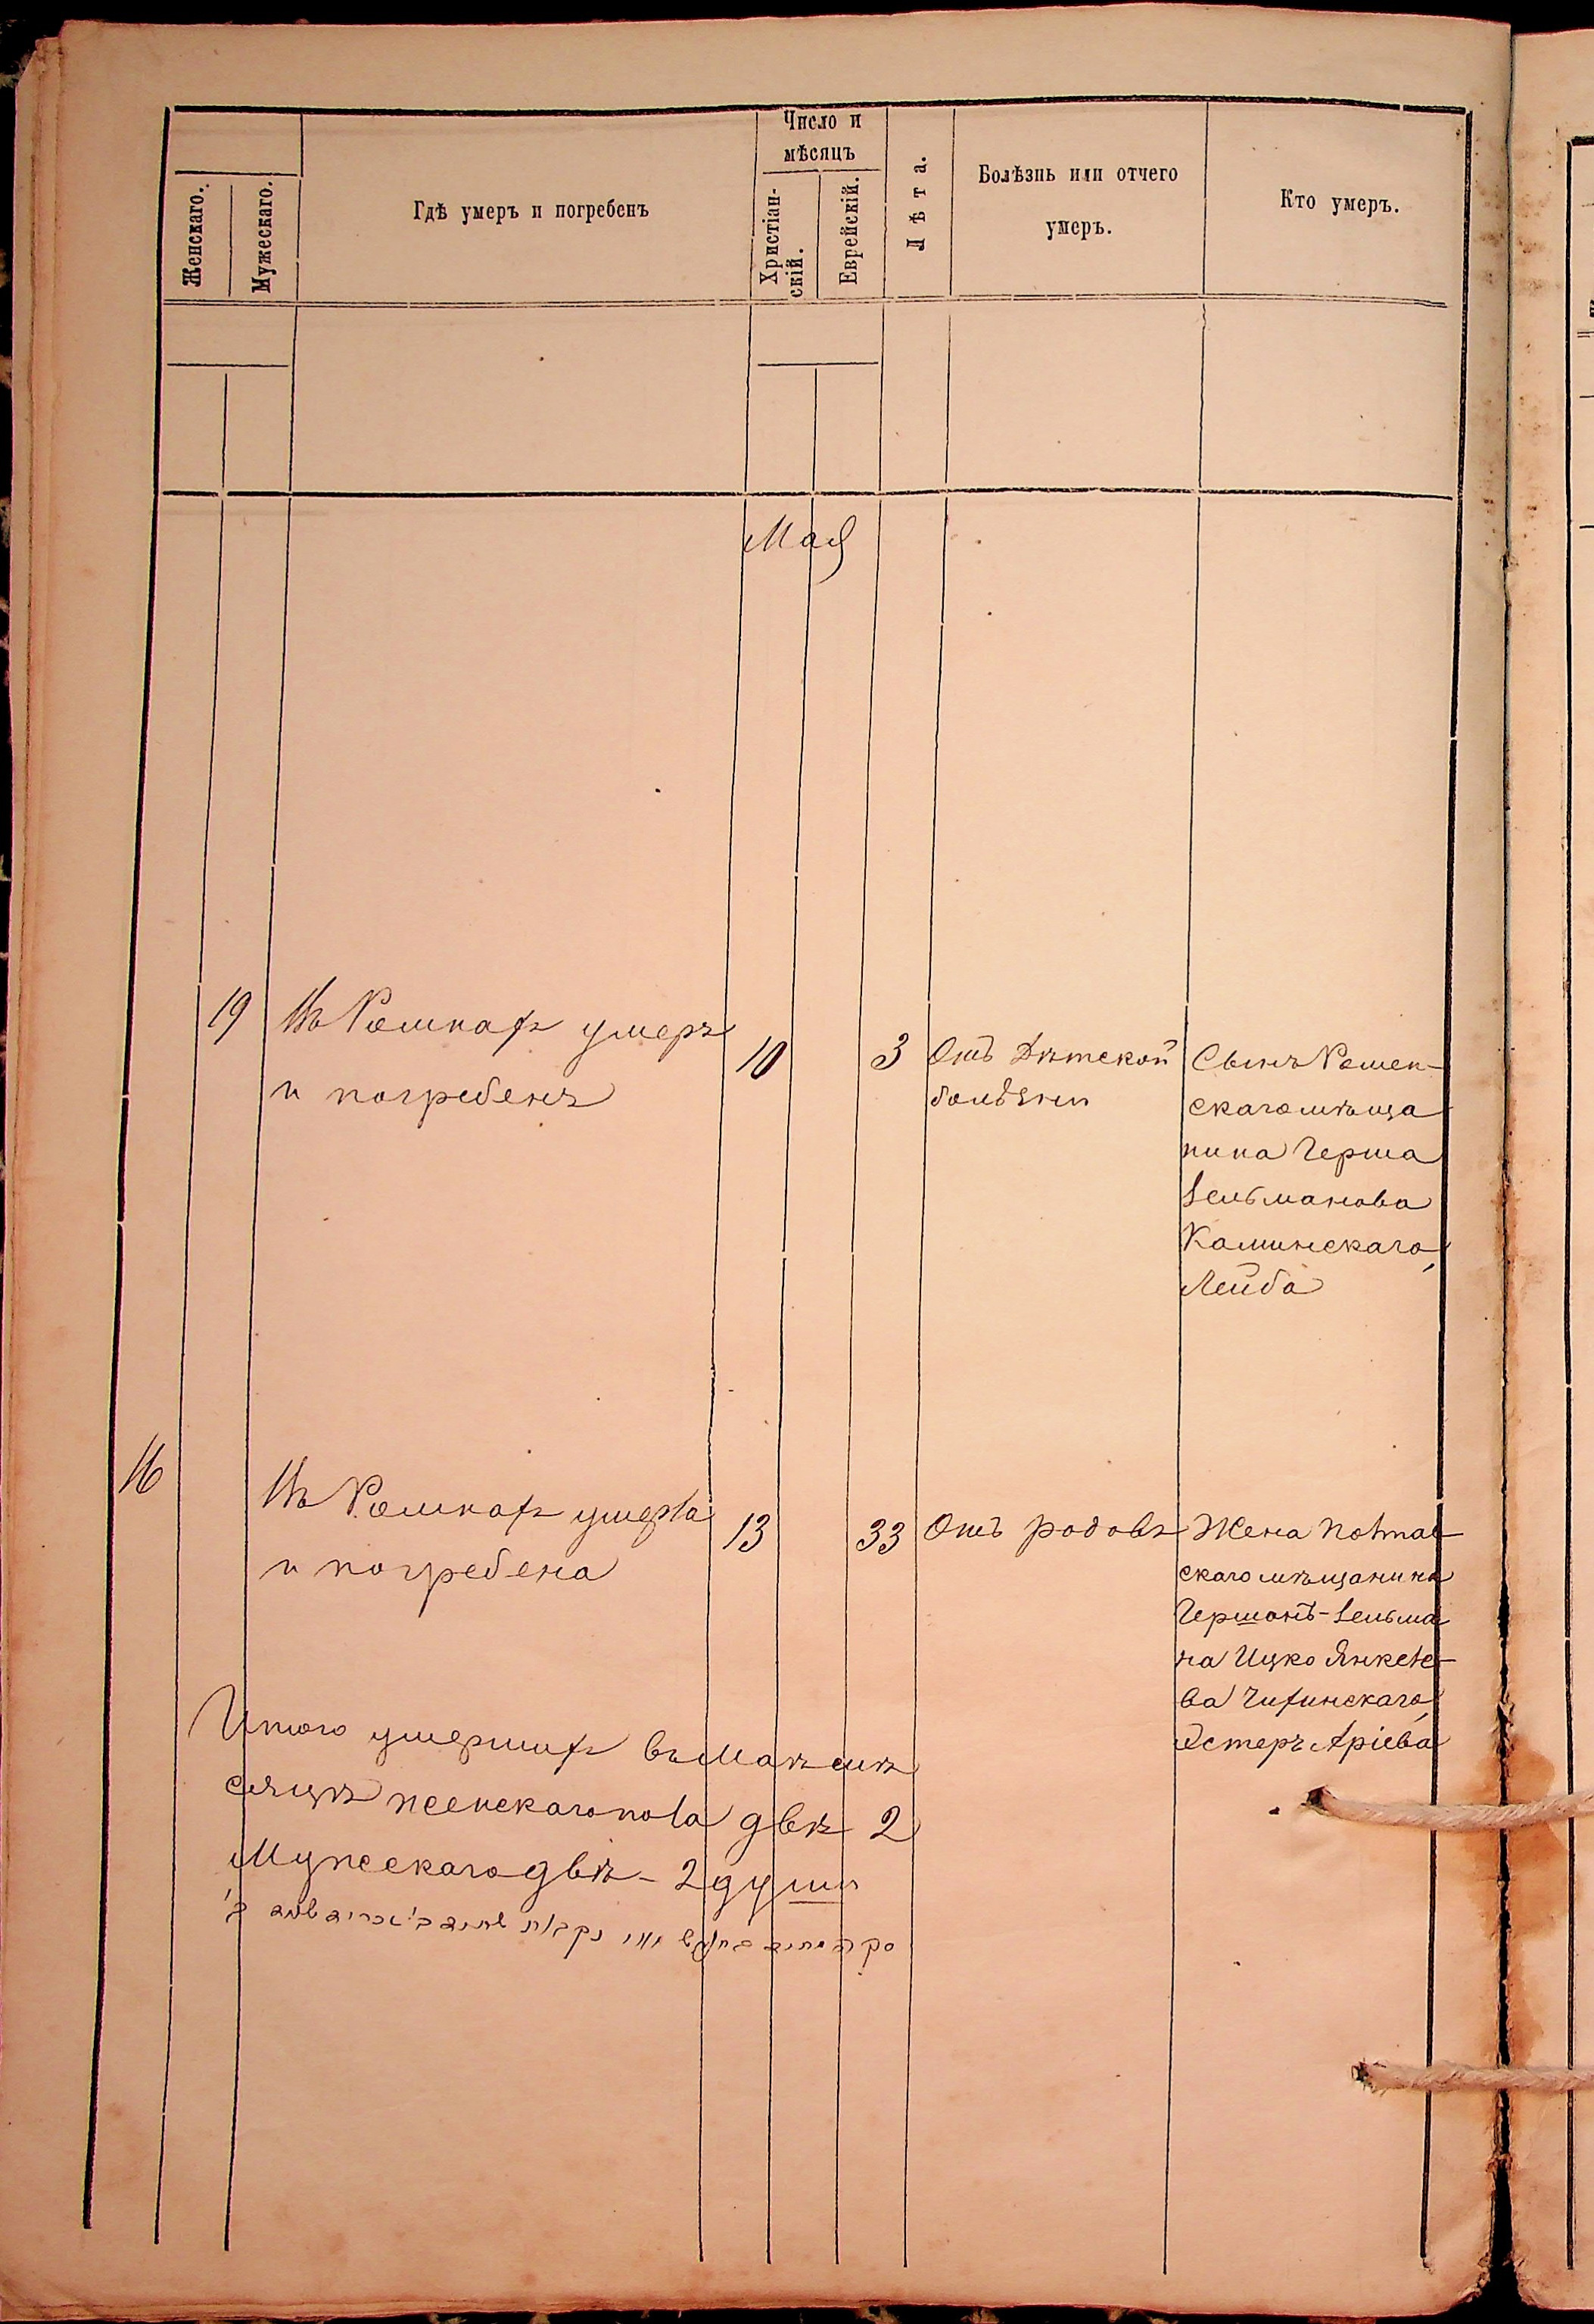 Женскаго.
Мужескаго.
Гдѣ умеръ и погребенъ
Число и
мѣсяцъ
Христіан-
скій.
Еврейскій.
Лѣта.
Болѣзнь или отчего
умеръ.
Кто умеръ.
Мая
19
Въ Ромнахъ умеръ
и погребенъ
10
3
Отъ Дѣтской
болѣзни
Сынъ Ромен-
скаго мѣща
нина Герша
Зельманова
Каминскаго,
Лейба
16
Въ Ромнахъ умерла
и погребена
13
33
Отъ родовъ
Жена Полтав
скаго мѣщанина
Гершонъ-Зельма
на Ицко Янкеле-
ва Чигинскаго,
Эстеръ Аріева
Итого умершихъ въ Маѣ мѣ
сяцѣ женскаго пола двѣ 2
Мужескаго двѣ - 2 души